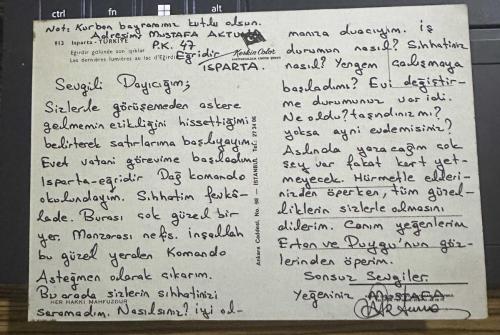 ctrl
fn
alt
Not: Kurban bayramınız kutlu olsun.
Adresim: MUSTAFA AKTUNA
P.K. 47
Eğridir
ISPARTA.
912 Isparta - TÜRKİYE
Eğirdir gölünde son ışıklar
Les dernières lumières au lac d'Eğirdir
Keskin Color
Sevgili Dayıcığım;
Sizlerle görüşemeden askere
gelmemin ezikliğini hissettiğimi
belirterek satırlarıma başlıyayım.
Evet vatani görevime başladım
Isparta-eğridir Dağ komando
okulundayım. Sıhhatim fevkâ-
lade. Burası çok güzel bir
yer. Manzarası nefis. inşallah
bu güzel yerden Komando
Asteğmen olarak çıkarım.
Bu arada sizlerin sıhhatinizi
soramadım. Nasılsınız? iyi ol-
HER HAKKI MAHFUZDUR
Ankara Caddesi, No. 98 — İSTANBUL
manıza duacıyım. iş
durumun nasıl? Sıhhatiniz
nasıl? Yengem çalışmaya
başladımı? Evi değiştir-
me durumunuz var idi.
Ne oldu? taşındınız mı?
yoksa ayni evdemisiniz?
Aslında yazacağım çok
şey var fakat kart yet-
meyecek. Hürmetle elleri-
nizden öperken, tüm güzel-
liklerin sizlerle olmasını
dilerim. Canım yeğenlerim
Erton ve Duygu'nun göz-
lerinden öperim.
Sonsuz Sevgiler.
Yeğeniniz MUSTAFA